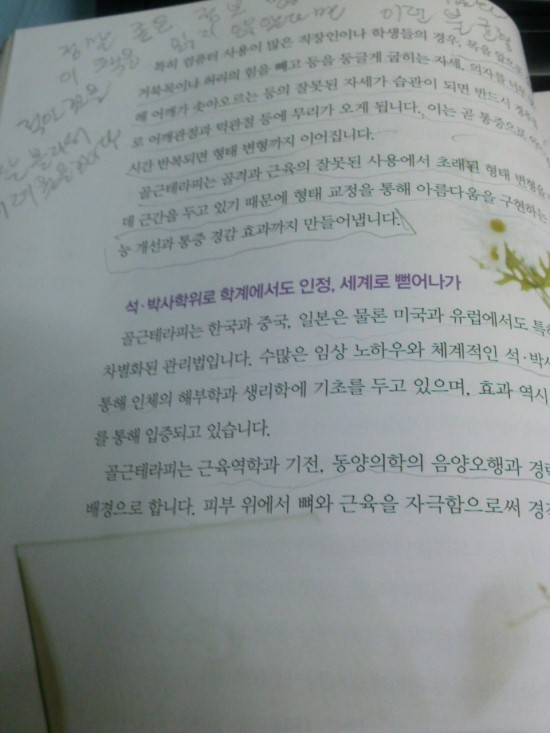 정말 좋은
이 책을 읽지 않았다면 이런
특히 컴퓨터 사용이 많은 직장인이나 학생들의 경우, 목을 앞으로
거북목이나 허리의 힘을 빼고 등을 둥글게 굽히는 자세, 의자를
해 어깨가 솟아오르는 등의 잘못된 자세가 습관이 되면 반드시
로 어깨관절과 턱관절 등에 무리가 오게 됩니다. 이는 곧 통증으로
시간 반복되면 형태 변형까지 이어집니다.
골근테라피는 골격과 근육의 잘못된 사용에서 초래된 형태 변형을
데 근간을 두고 있기 때문에 형태 교정을 통해 아름다움을 구현하는
능 개선과 통증 경감 효과까지 만들어냅니다.
석·박사학위로 학계에서도 인정, 세계로 뻗어나가
골근테라피는 한국과 중국, 일본은 물론 미국과 유럽에서도
차별화된 관리법입니다. 수많은 임상 노하우와 체계적인 석·박
통해 인체의 해부학과 생리학에 기초를 두고 있으며, 효과 역시
를 통해 입증되고 있습니다.
골근테라피는 근육역학과 기전, 동양의학의 음양오행과
배경으로 합니다. 피부 위에서 뼈와 근육을 자극함으로써